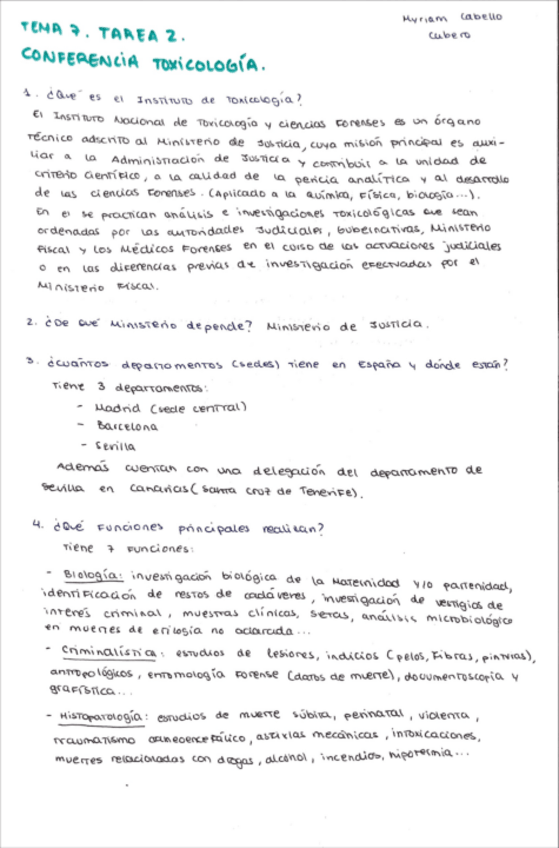 Myriam Cabello
Cubero
TEMA 7. TAREA 2.
CONFERENCIA TOXICOLOGÍA.
1. ¿Qué es el Instituto de Toxicología?
El Instituto Nacional de Toxicología y ciencias Forenses es un órgano
técnico adscrito al Ministerio de Justicia, cuya misión principal es auxi-
liar a la Administración de Justicia y contribuir a la unidad de
criterio científico, a la calidad de la pericia analítica y al desarrollo
de las ciencias Forenses. (Aplicado a la química, Física, biología...).
En el se practican análisis e investigaciones toxicológicas que sean
ordenadas por las autoridades Judiciales, Gubernativas, Ministerio
Fiscal y los Médicos Forenses en el curso de las actuaciones judiciales
o en las diferencias previas de investigación efectuadas por el
Ministerio Fiscal.
2. ¿De qué Ministerio depende? Ministerio de Justicia.
3. ¿Cuántos departamentos (sedes) tiene en España y dónde están?
Tiene 3 departamentos:
- Madrid (sede central)
- Barcelona
- Sevilla
Además cuentan con una delegación del departamento de
Sevilla en Canarias (Santa Cruz de Tenerife).
4. ¿Qué Funciones principales realizan?
Tiene 7 Funciones:
- Biología: investigación biológica de la Maternidad y/o parternidad,
identificación de restos de cadáveres, investigación de vestigios de
interés criminal, muestras clínicas, setas, análisis microbiológico
en muertes de etilogía no aclarada...
- Criminalística: estudios de lesiones, indicios (pelos, Fibras, pinturas),
antropológicos, entomología Forense (datos de muerte), documentoscopia y
grafística...
- Histopatología: estudios de muerte súbita, perinatal, violenta,
traumatismo craneoencefálico, asfixias mecánicas, intoxicaciones,
muertes relacionadas con drogas, alcohol, incendios, hipotermia...